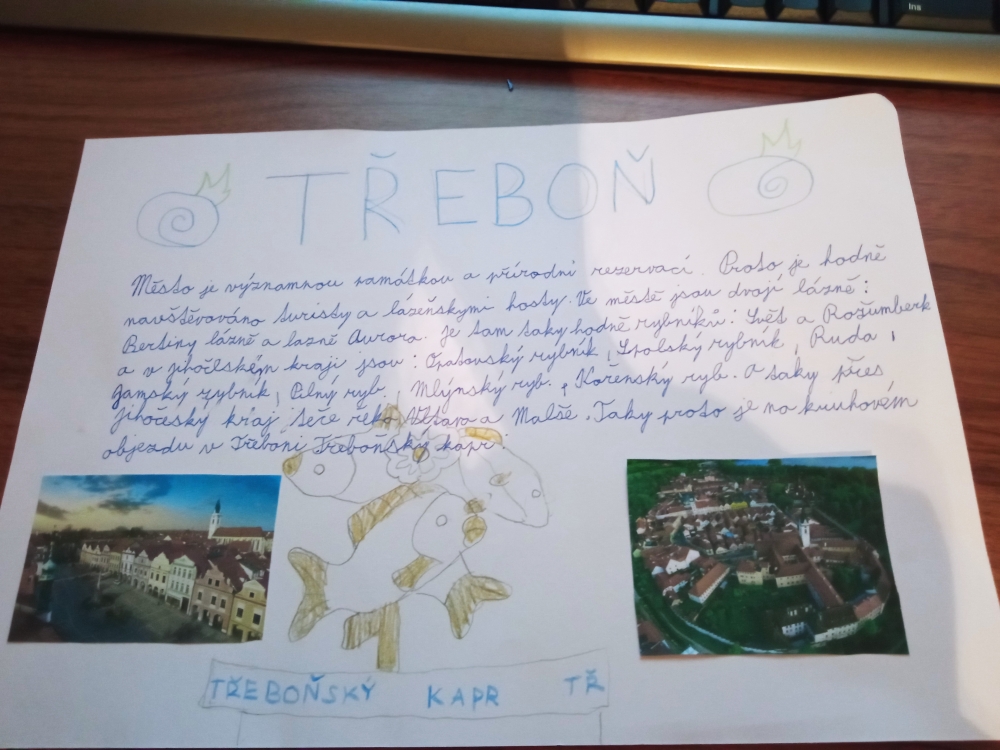 Ins
TŘEBOŇ
Město je významnou památkou a přírodní rezervací. Proto je hodně
navštěvováno turisty a lázeňskými hosty. Ve městě jsou dvojí lázně:
Bertiny lázně a lazně Aurora. Je tam taky hodně rybníků: Svět a Rožumberk
a v jihočském kraji jsou: Opatovský rybník, Spolský rybník, Ruda,
Jamský rybník, Pilný ryb. Mlýnský ryb., Kořenský ryb. A taky přes
Jihočeský kraj teče řeka Vltava a Malše. Taky proto je na kruhovém
objezdu v Třeboni Třeboňský kapr.
TŘEBOŇSKÝ KAPR TŘ